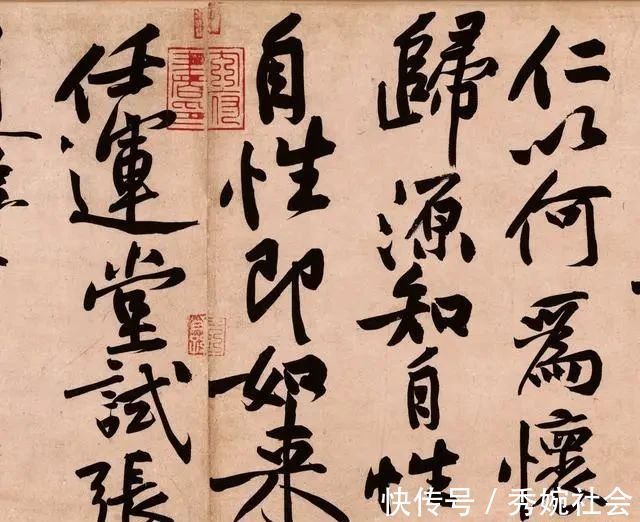 仁以何為懷
歸源知自性
自性即如來
任運堂試張
快传号 / 秀婉社会